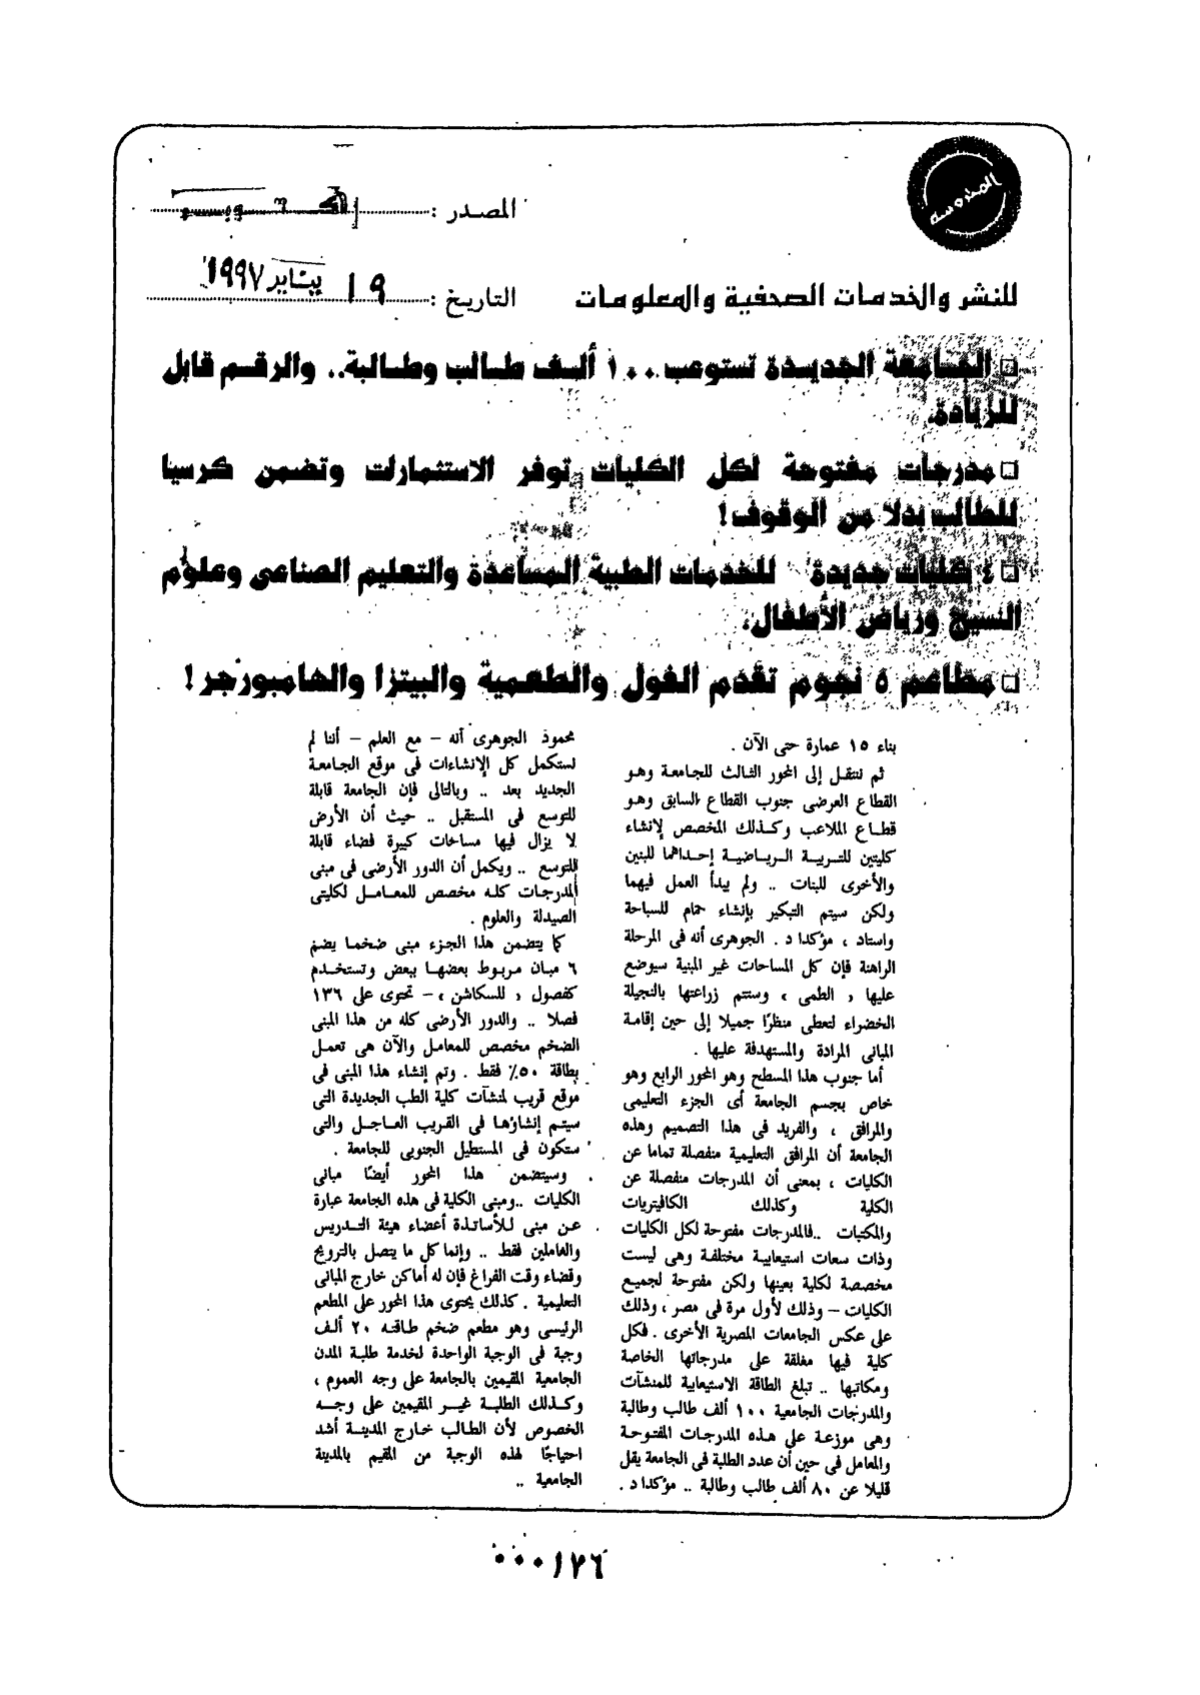 المحروسة
المصدر : أكتوبر
للنشر والخدمات الصحفية والمعلومات
التاريخ : ١٩ يناير ١٩٩٧
□ الجامعة الجديدة تستوعب ١٠٠ ألف طالب وطالبة.. والرقم قابل
للزيادة.
□ مدرجات مفتوحة لكل الكليات توفر الاستثمارات وتضمن كرسيا
للطالب بدلا من الوقوف!
□ ٤ كليات جديدة للخدمات الطبية المساعدة والتعليم الصناعى وعلوم
النسيج ورياض الأطفال.
□ مطاعم ٥ نجوم تقدم الفول والطعمية والبيتزا والهامبورجر!
بناء ١٥ عمارة حتى الآن .
ثم ننتقل إلى المحور الثالث للجامعة وهو
القطاع العرضى جنوب القطاع السابق وهو
قطاع الملاعب وكذلك المخصص لإنشاء
كليتين للتربية الرياضية إحداهما للبنين
والأخرى للبنات .. ولم يبدأ العمل فيهما
ولكن سيتم التبكير بإنشاء حمام للسباحة
واستاد ، مؤكدا د . الجوهرى أنه فى المرحلة
الراهنة فإن كل المساحات غير المبنية سيوضع
عليها « الطمى » وستتم زراعتها بالنجيلة
الخضراء لتعطى منظرًا جميلا إلى حين إقامة
المبانى المرادة والمستهدفة عليها .
أما جنوب هذا المسطح وهو المحور الرابع وهو
خاص بجسم الجامعة أى الجزء التعليمى
والمرافق ، والفريد فى هذا التصميم وهذه
الجامعة أن المرافق التعليمية منفصلة تماما عن
الكليات ، بمعنى أن المدرجات منفصلة عن
الكلية وكذلك الكافيتريات
والمكتبات ..فالمدرجات مفتوحة لكل الكليات
وذات سعات استيعابية مختلفة وهى ليست
مخصصة لكلية بعينها ولكن مفتوحة لجميع
الكليات – وذلك لأول مرة فى مصر ، وذلك
على عكس الجامعات المصرية الأخرى . فكل
كلية فيها مغلقة على مدرجاتها الخاصة
ومكاتبها .. تبلغ الطاقة الاستيعابية للمنشآت
والمدرجات الجامعية ١٠٠ ألف طالب وطالبة
وهى موزعة على هذه المدرجات المفتوحة
والمعامل فى حين أن عدد الطلبة فى الجامعة يقل
قليلا عن ٨٠ ألف طالب وطالبة .. مؤكدا د .
محمود الجوهرى أنه – مع العلم – أننا لم
نستكمل كل الإنشاءات فى موقع الجامعة
الجديد بعد .. وبالتالى فإن الجامعة قابلة
للتوسع فى المستقبل .. حيث أن الأرض
لا يزال فيها مساحات كبيرة فضاء قابلة
للتوسع .. ويكمل أن الدور الأرضى فى مبنى
المدرجات كله مخصص للمعامل لكليتى
الصيدلة والعلوم .
كما يتضمن هذا الجزء مبنى ضخما يضم
٦ مبان مربوط بعضها ببعض وتستخدم
كفصول « للسكاشن » – تحتوى على ١٣٦
فصلا .. والدور الأرضى كله من هذا المبنى
الضخم مخصص للمعامل والآن هى تعمل
بطاقة ٥٠٪ فقط . وتم إنشاء هذا المبنى فى
موقع قريب لمنشآت كلية الطب الجديدة التى
سيتم إنشاؤها فى القريب العاجل والتى
ستكون فى المستطيل الجنوبى للجامعة .
وسيتضمن هذا المحور أيضًا مبانى
الكليات ..ومبنى الكلية فى هذه الجامعة عبارة
عن مبنى للأساتذة أعضاء هيئة التدريس
والعاملين فقط .. وإنما كل ما يتصل بالترويح
وقضاء وقت الفراغ فإن له أماكن خارج المبانى
التعليمية . كذلك يحتوى هذا المحور على المطعم
الرئيسى وهو مطعم ضخم طاقته ٢٠ ألف
وجبة فى الوجبة الواحدة لخدمة طلبة المدن
الجامعية المقيمين بالجامعة على وجه العموم ،
وكذلك الطلبة غير المقيمين على وجه
الخصوص لأن الطالب خارج المدينة أشد
احتياجًا لهذه الوجبة من المقيم بالمدينة
الجامعية ..
٠٠٠١٧٦